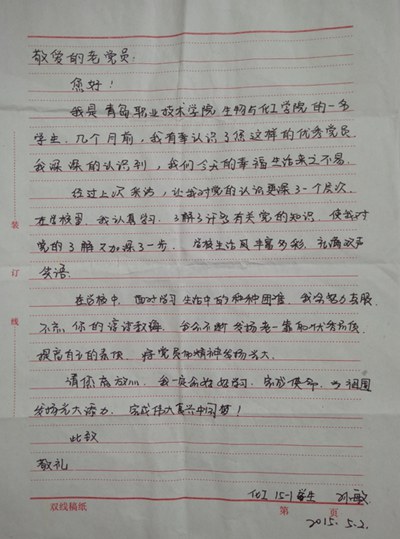 敬爱的老党员:
您好!
我是青岛职业技术学院生物与化工学院的一名
学生。几个月前,我有幸认识了像您这样的优秀党员
我深深的认识到,我们今天的幸福生活来之不易。
经过上次采访,让我对党的认识更深了一个层次。
在学校里,我认真学习,了解了许多有关党的知识,使我对
党的了解又加深了一步。学校生活风丰富多彩,充满欢声
笑语。
在学校中,面对学习生活中的种种困难,我会努力克服
不忘你的谆谆教诲,会不断发扬老一辈的优秀品质
提高自己的素质,将党员的精神发扬光大。
请您放心,我一定会好好学习,完成使命,为祖国
发扬光大努力,完成伟大复兴中国梦!
此致
敬礼
化工15-1学生 孙敏
2015.5.2.
装
订
线
双线稿纸 第 页